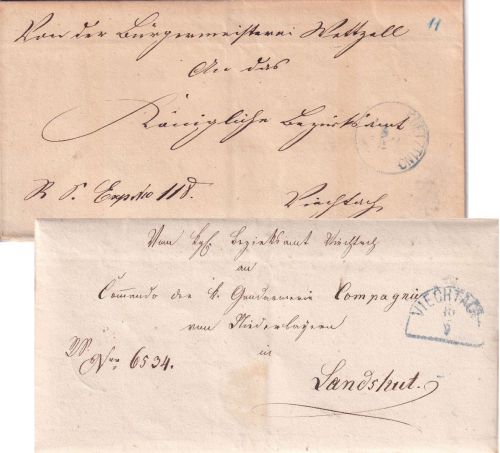 11
Von der Bürgermeisterei Wettzell
An das
Königliche Bezirksamt
R. S. Exp No 118.
Viechtach
Vom kgl. Bezirksamt Viechtach
an
Commando der k. Gendarmerie Compagnie
von Niederbayern
in
R.S. Nro 6534.
Landshut.
VIECHTACH
10
9